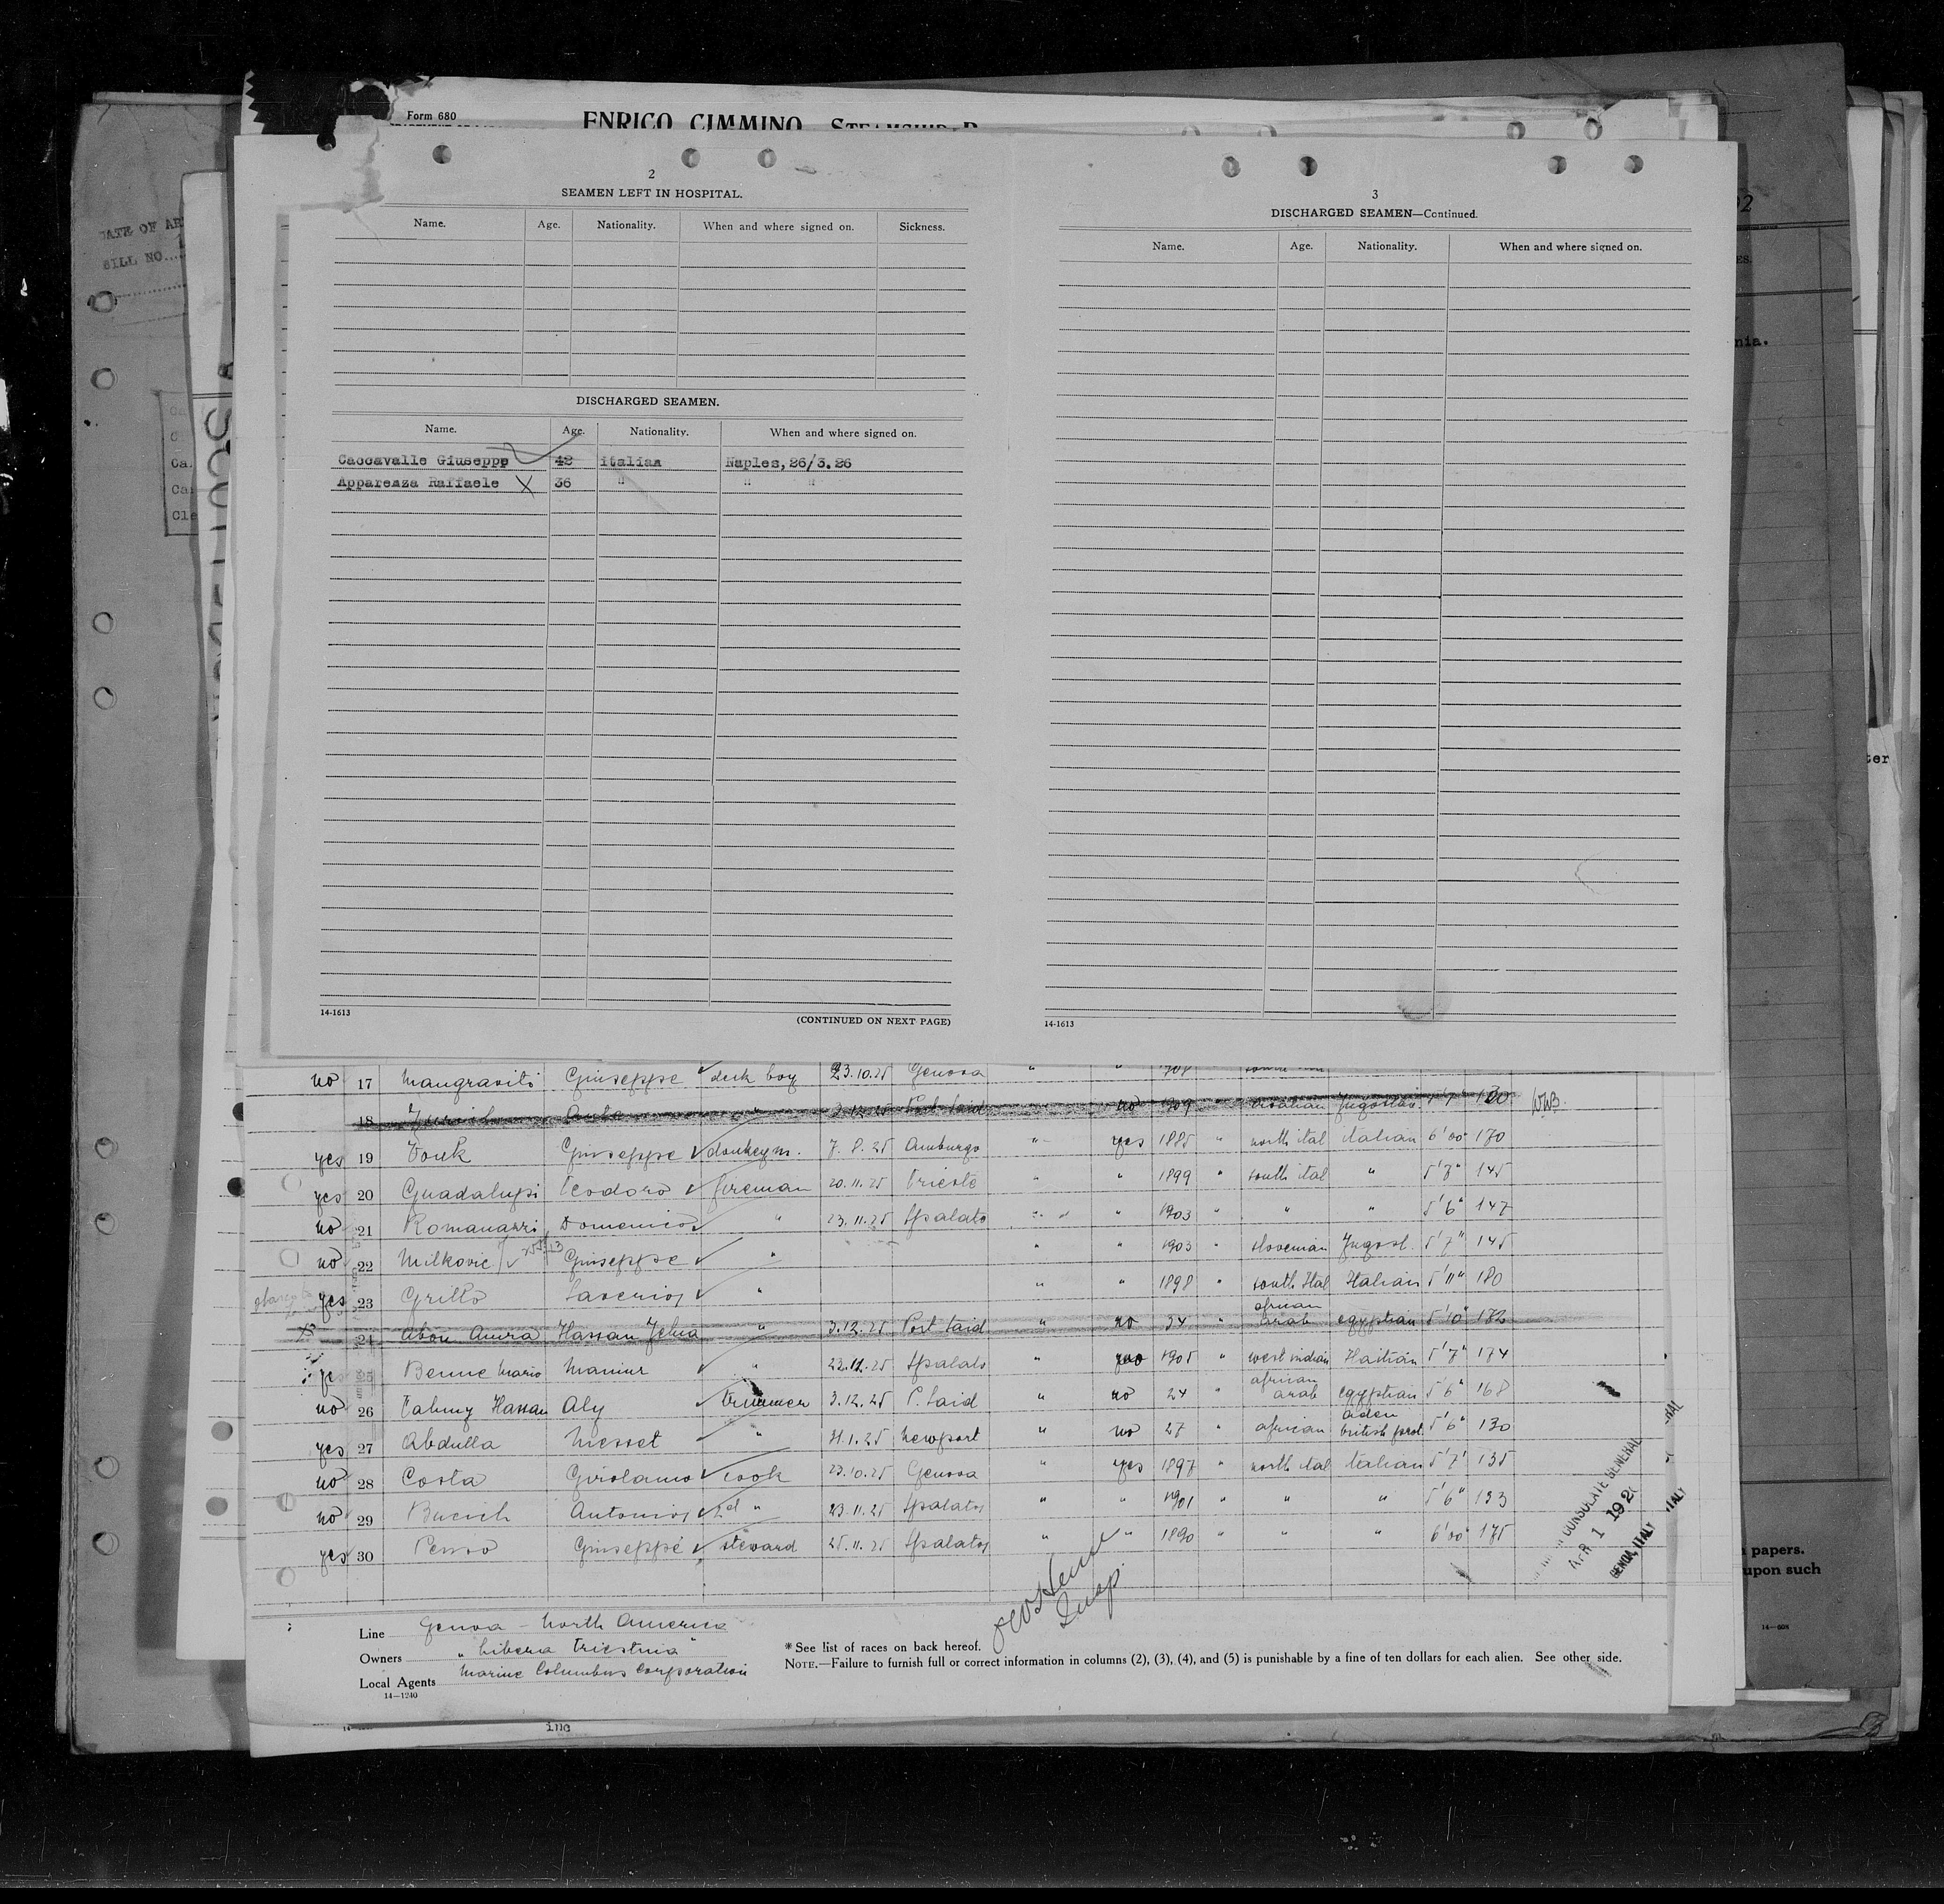 Form 680
ENRICO CIMMINO
DATE OF
BILL NO.
2
SEAMEN LEFT IN HOSPITAL.
Name. Age. Nationality. When and where signed on. Sickness.
DISCHARGED SEAMEN.
Name. Age. Nationality. When and where signed on.
Caccavalle Giuseppe 42 italian Naples, 26/3.26
Apparenza Raffaele X 36 " " "
14-1613
(CONTINUED ON NEXT PAGE)
3
DISCHARGED SEAMEN—Continued.
Name. Age. Nationality. When and where signed on.
14-1613
no 17 Mangraviti Giuseppe deck boy 23.10.25 Genova " "
18 3.12.25 Port Said no 1909 " croatian 130 WWB
yes 19 Giuseppe donkeym. 7.8.25 Amburgo " yes 1885 " north ital italian 6'00" 170
yes 20 Guadalupi Teodoro fireman 20.11.25 Trieste " " 1899 " south ital " 5'8" 145
no 21 Domenico " 23.11.25 Spalato " " 1903 " " " 5'6" 147
no 22 Milkovic Giuseppe " " " 1903 " slovenian Jugosl. 5'7" 145
yes 23 Grillo Saverio " " " 1898 " south Ital Italian 5'11" 180
24 Abou Amra Hassan " 3.12.25 Port Said " no 34 " african arab egyptian 5'10" 182
25 Benne Mario " 22.11.25 Spalato " 1905 " west indian Haitian 5'7" 174
no 26 Fahmy Hassan Aly trimmer 3.12.25 P. Said " no 24 " african arab egyptian 5'6" 168
yes 27 Abdulla Messet " 31.1.25 Newport " no 27 " african aden british prot. 5'6" 130
no 28 Costa Girolamo cook 23.10.25 Genova " yes 1897 " north ital italian 5'7" 135
no 29 Bucich Antonio 2d " 23.11.25 Spalato " " 1901 " " " 5'6" 133
yes 30 Penso Giuseppe steward 25.11.25 Spalato " " 1890 " " " 6'00" 175
Insp.
CONSULATE GENERAL
APR 1 192
GENOA, ITALY
Line Genova - North America
Owners "Libera Triestina"
Local Agents Marine Columbus Corporation
14—1240
*See list of races on back hereof.
NOTE.—Failure to furnish full or correct information in columns (2), (3), (4), and (5) is punishable by a fine of ten dollars for each alien. See other side.
papers.
upon such